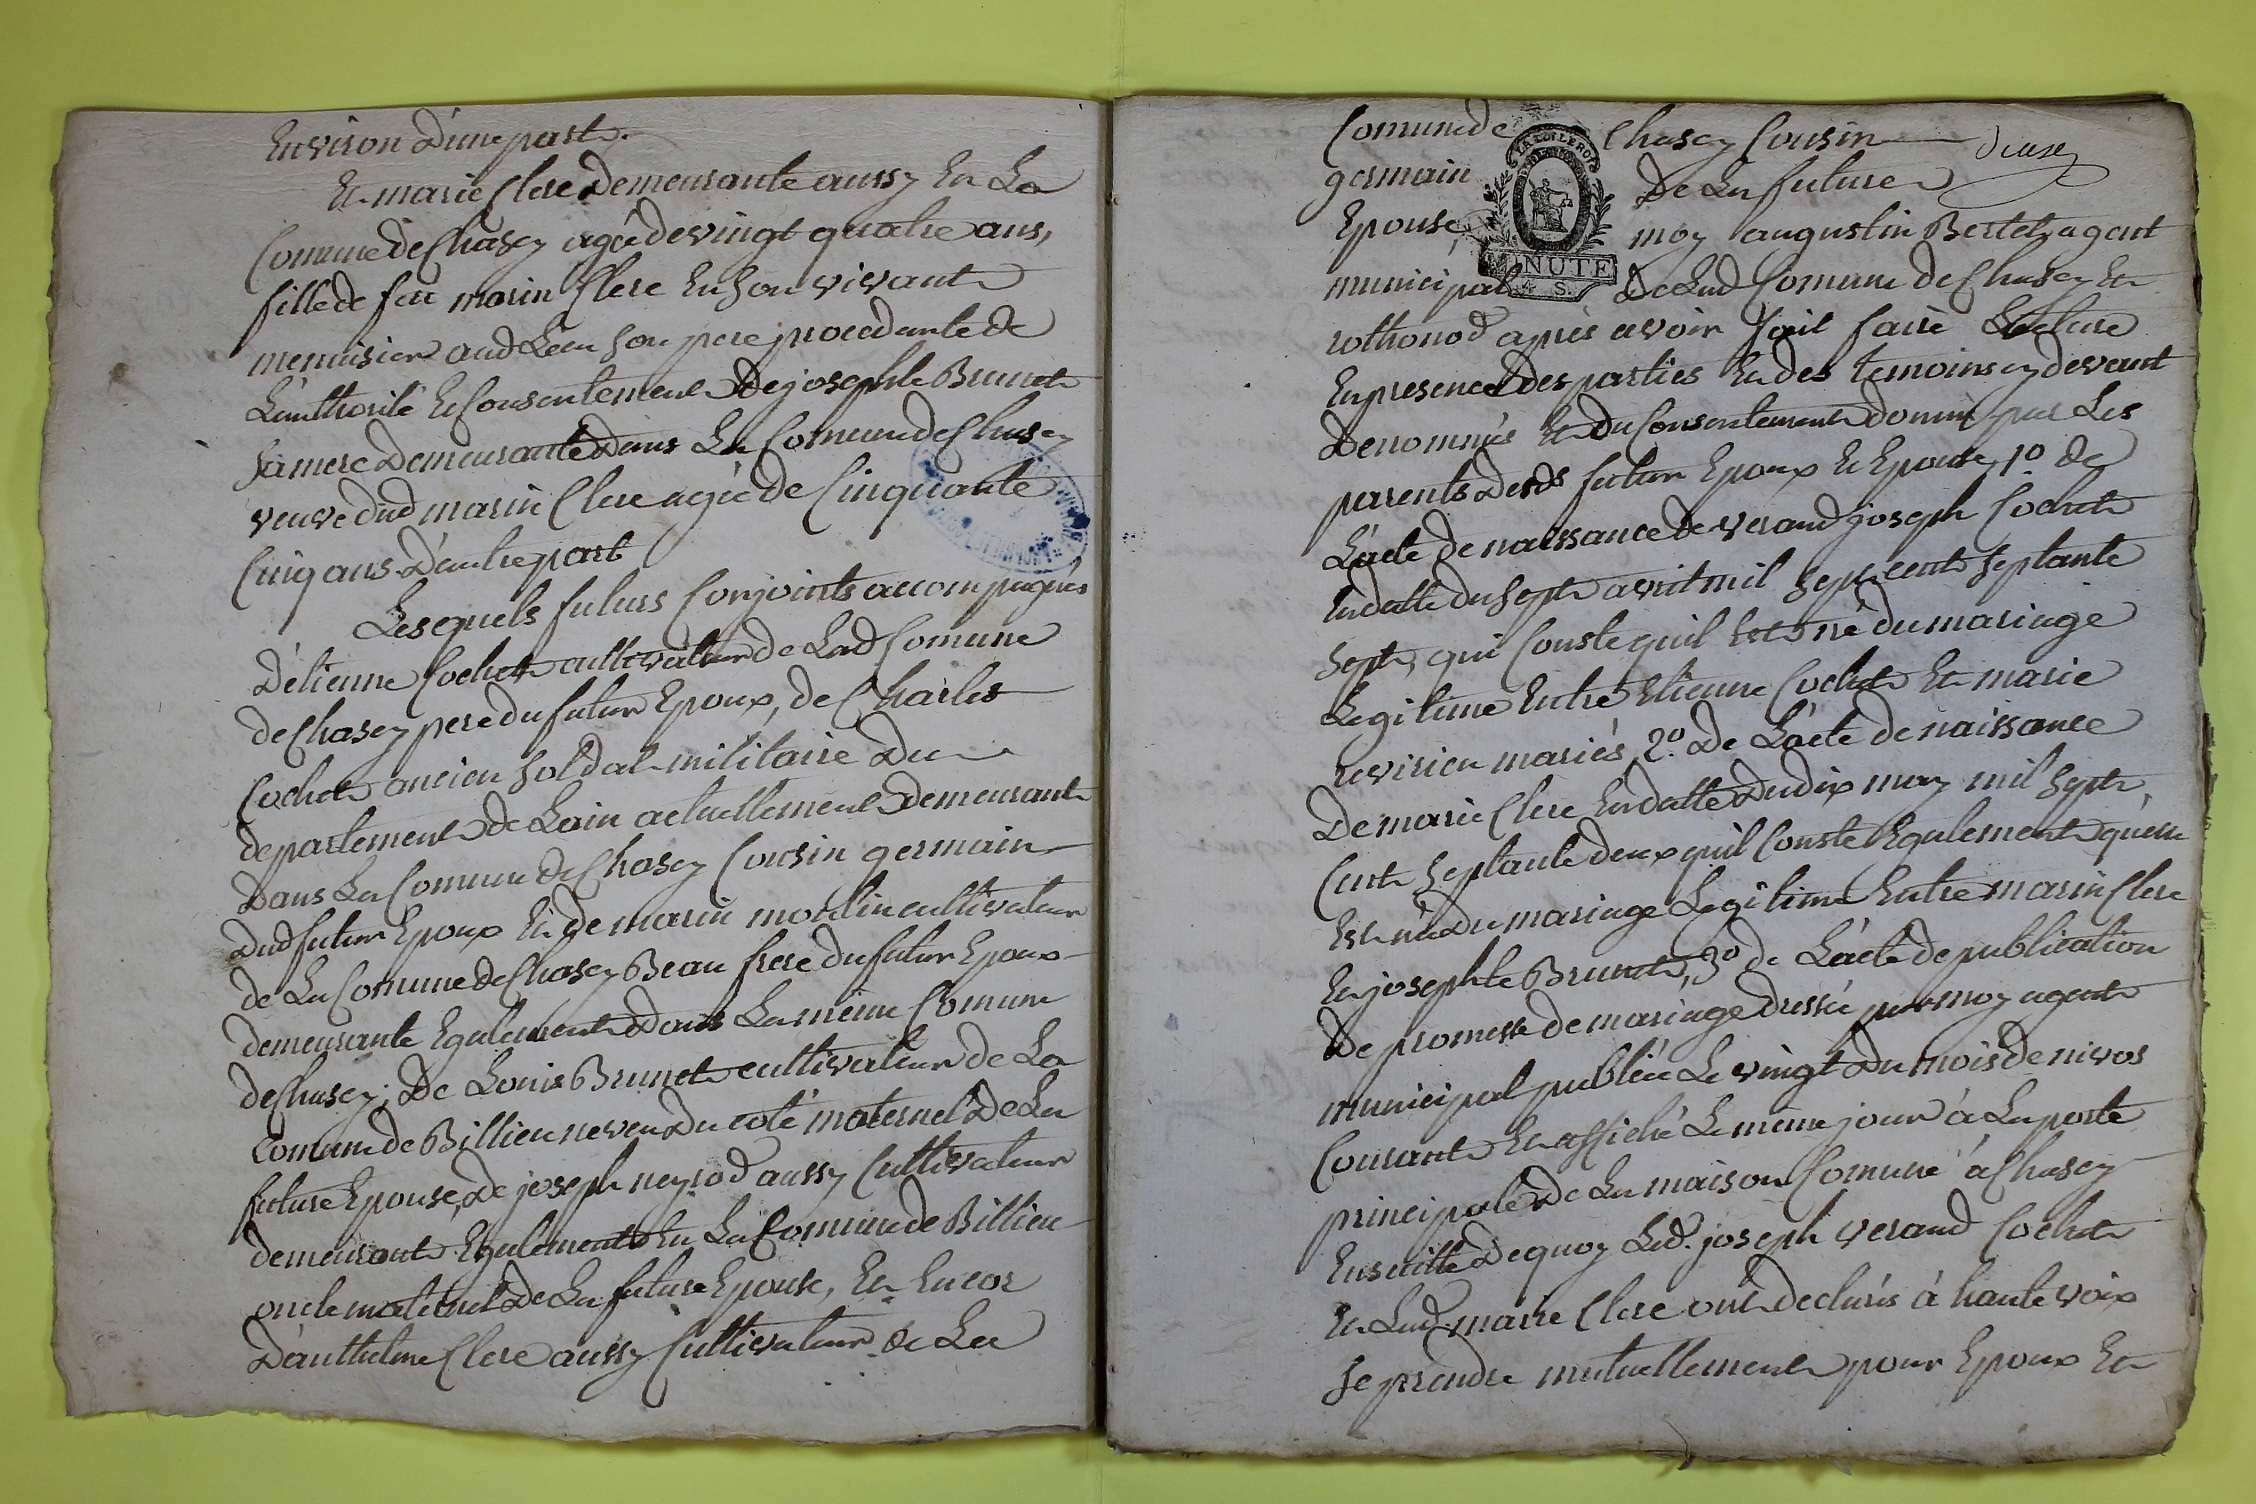 Environ d'une part.
Et marie Clere demeurante aussy En La
Comune de Chasey agée de vingt quatre ans,
fille de feu marin Clere En son vivant
menuisier aud Lieu son pere procedante de
L'authorité et Consentement de josephte Brunet
sa mere demeurante dans La Comune de Chasey
veuve dud marin Clere agée de Cinquante
Cinq ans d'autre part
Lesquels futurs Conjoints accompagnés
d'étienne Cochet cultivateur de Lad Comune
de Chasey pere du futur Epoux, de Charles
Cochet ancien soldat militaire du
departement de Lain actuellement demeurant
dans La Comune de Chasey Cousin germain
dud futur Epoux Et de marin moulin cultivateur
de La Comune de Chasey Beau frere du futur Epoux
demeurante Egalement dans La même Comune
de Chasey; de Louis Brunet cultivateur de La
Comune de Billieu neveu du coté maternel de La
future Epouse, de joseph neyrod aussy Cultivateur
demeurant Egalement En La Comune de Billieu
oncle maternel de La future Epouse, Et Encor
d'anthelme Clere aussy Cultivateur de La
Comune de Chasey Cousin
germain de La future
Epouse, moy augustin Bertet agent
municipal de Lad Comune de Chasey Et
rothonod après avoir fait faire Lecture
En presence des parties Et des temoins cy devant
denommés Et du Consentement donné par Les
parents desds futur Epoux Et Epouse, 1o. de
L'acte de naissance de verand joseph Cochet
En datte du sept avril mil sept cent septante
sept, qui Conste quil Est né du mariage
Legitime Entre Etienne Cochet Et marie
revirieu mariés, 2o. de L'acte de naissance
de marie Clere En datte du dix may mil sept
Cent septante deux quil Conste Egalement quelle
Est née du mariage Legitime Entre marin Clere
Et josephte Brunet, 3o de L'acte de publication
de promesse de mariage dressée par moy agent
municipal publiée Le vingt du mois de nivos
Courant Et affiché Le même jour à La porte
principale de La maison Comune à Chasey
Ensuitte de quoy Led. joseph verand Cochet
Et Lad. marie Clere ont declarés à haute voix
se prendre mutuellement pour Epoux Et
LA LOI LE ROI
MINUTE
4 S.